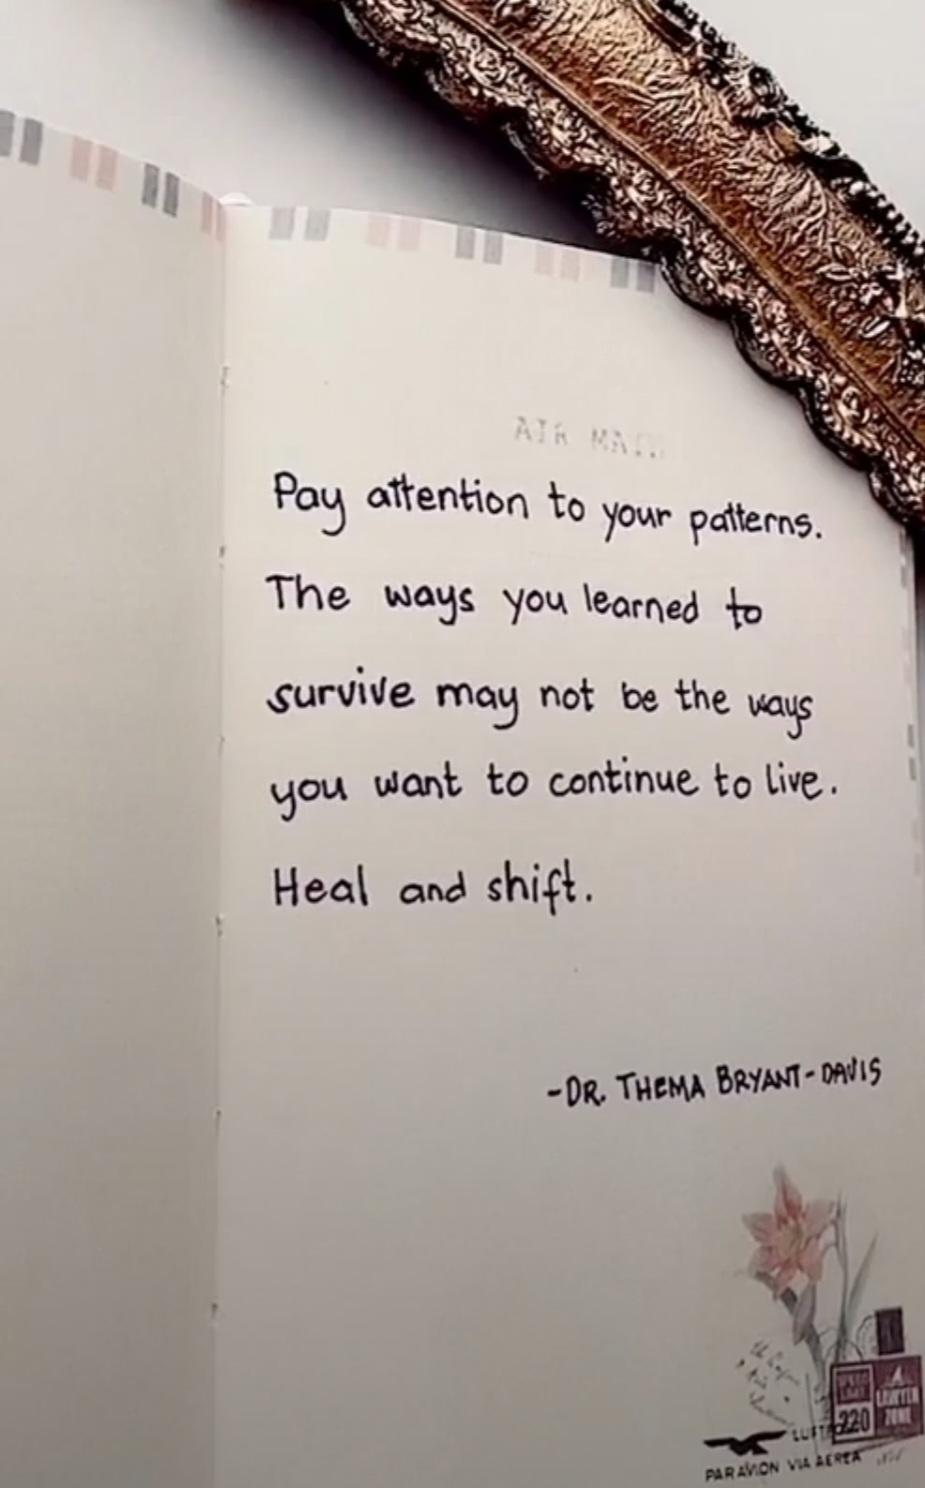 AIR MAIL
Pay attention to your patterns.
The ways you learned to
survive may not be the ways
you want to continue to live.
Heal and shift.
-DR. THEMA BRYANT-DAVIS
220
ZONE
PAR AVION VIA AEREA